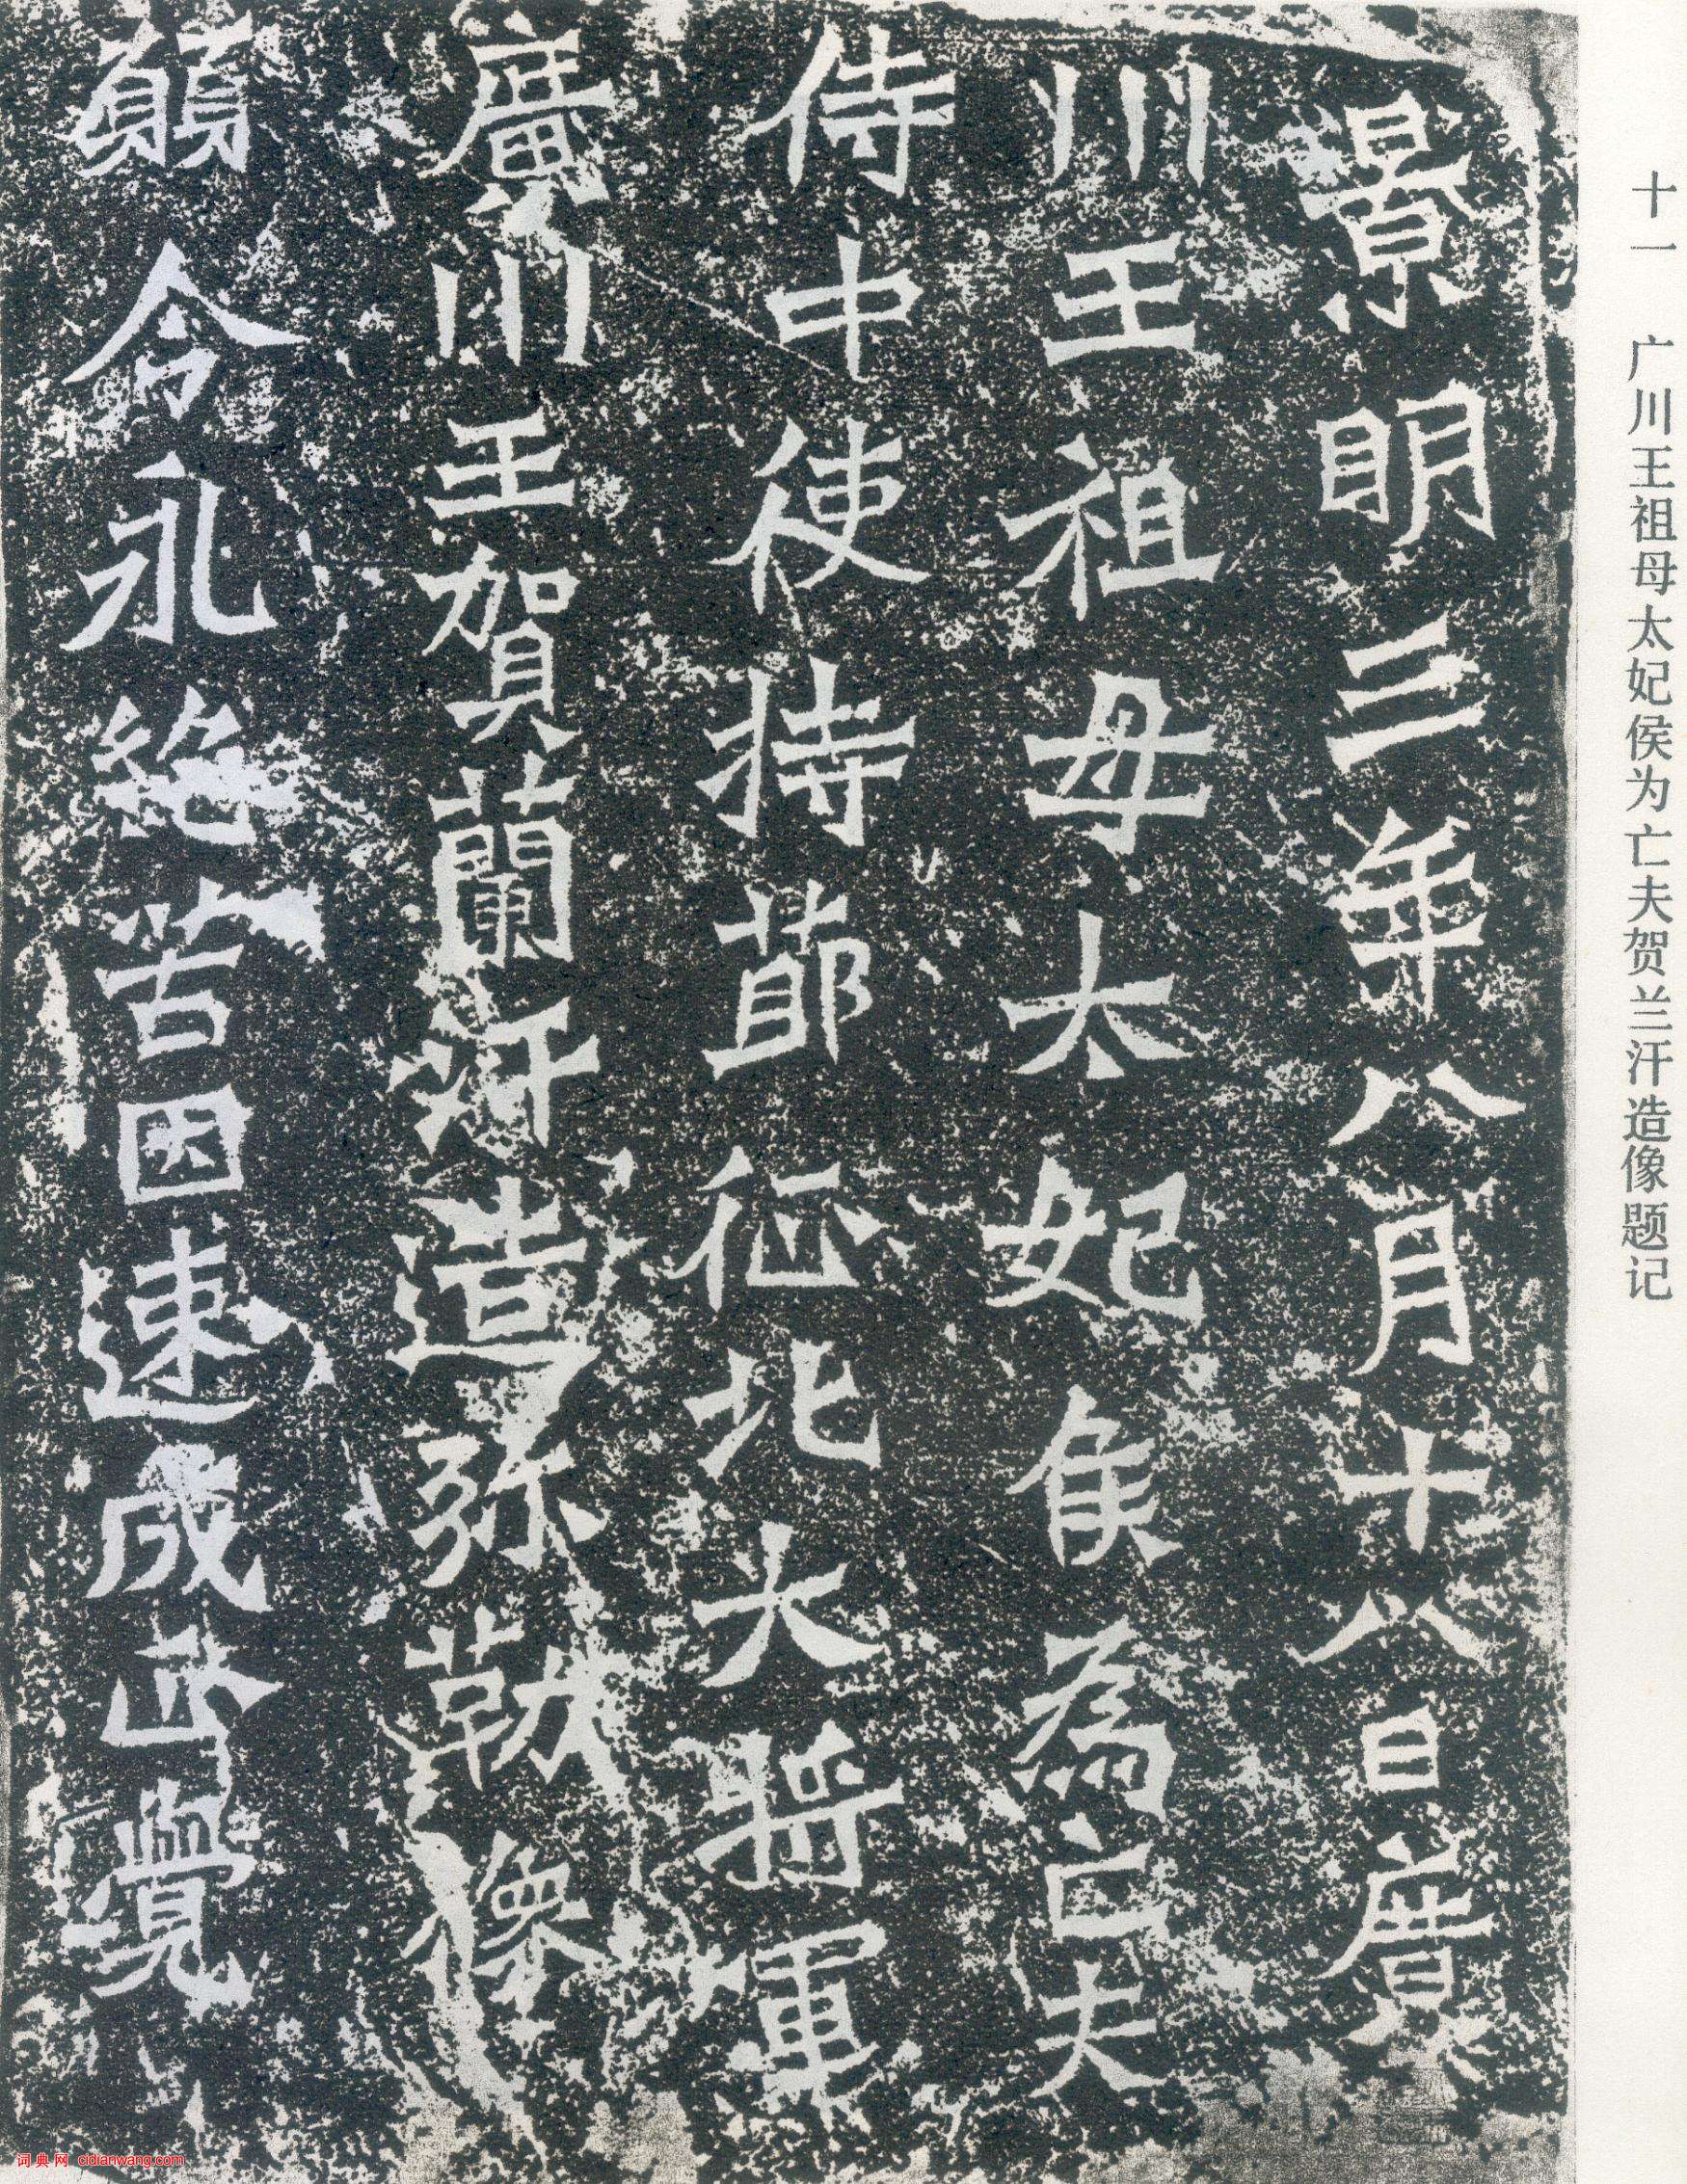 十一 广川王祖母太妃侯为亡夫贺兰汗造像题记
景明三年八月十八日廣
川王祖母太妃侯為亡夫
侍中使持節征北大將軍
廣川王賀蘭汗造弥勒像
願令永絕苦因速成正覺
词典网 cidianwang.com